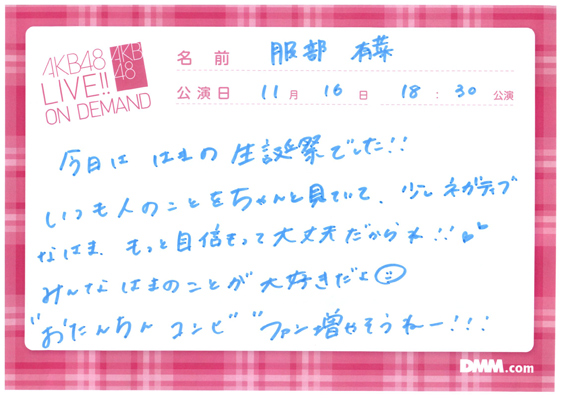 AKB48
LIVE!!
ON DEMAND
AKB
48
名前 服部 有菜
公演日 11月 16日 18:30 公演
今日は はまの 生誕祭でした!!
いつも人のことをちゃんと見ていて、少しネガティブ
なはま、もっと自信もって大丈夫だからね!!
みんなはまのことが大好きだよ
"おたんちん コンビ" ファン増やそうねー!!!
DMM.com